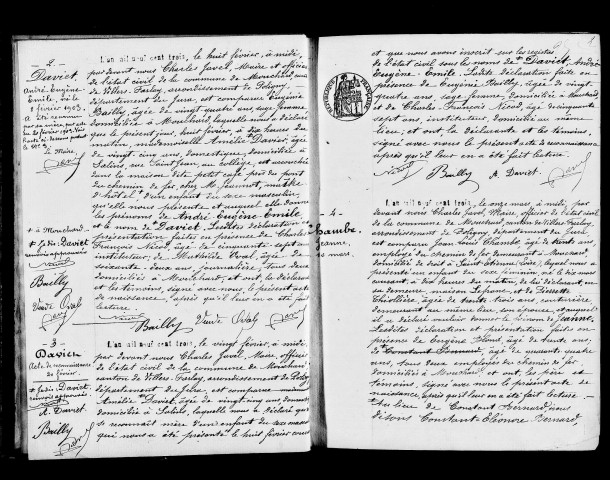 - 2 -
Daviet
André Eugène
Emile, né le
8 février 1903.
à Mouchard
+ fdio Daviet
renvoi approuvé
Bailly
Veuve Oval
- 3 -
Davien
Acte de reconnaissance
20 février.
+ fdio Daviet
renvoi approuvé
A. Daviet
Bailly
L'an mil neuf cent trois, le huit février, à midi,
par devant nous Charles Javel, Maire et officier
de l'état civil de la commune de Mouchard, canton
de Villers-Farlay, arrondissement de Poligny,
département du Jura, est comparue Eugénie
Bailly, âgée de quarante quatre ans, sage-femme
domiciliée à Mouchard, laquelle nous a déclaré
que le présent jour, huit février, à dix heures du
matin, mademoiselle Amélie Daviet, âgée
de vingt-cinq ans, domestique, domiciliée à
Salins, rue Saint-Jean, au collège, est accouchée
dans la maison dite petit café près du pont
du chemin de fer, chez M. Jeannot, maître
d'hôtel, d'un enfant du sexe masculin,
qu'elle nous présente et auquel elle donne
les prénoms de André Eugène Emile
et le nom de Daviet. Lesdites déclaration et
présentation faites en présence de Charles
François Nicod, âgé de cinquante sept ans,
instituteur, de Mathilde Oval, âgée de
soixante deux ans, journalière, tous deux
domiciliés à Mouchard; et ont, la déclarante
et les témoins, signé avec nous le présent acte
de naissance, après qu'il leur en a été fait
lecture.
Bailly Veuve Oval
L'an mil neuf cent trois, le vingt février, à midi
par devant nous Charles Javel, Maire, officier
de l'état civil de la commune de Mouchard
canton de Villers-Farlay, arrondissement de Poligny
département du Jura, est comparue
Amélie Daviet, âgée de vingt-cinq ans, domestique
domiciliée à Salins, laquelle nous a déclaré que
se reconnaît mère d'un enfant du sexe masculin
qui nous a été présenté le huit février courant
et que nous avons inscrit sur les registres
de l'état civil sous les noms de Daviet, André
Eugène Emile. Ladite déclaration faite en
présence de Eugénie Bailly, âgée de quarante
quatre ans, sage-femme, domiciliée à Mouchard
et de Charles François Nicod, âgé de cinquante
sept ans, instituteur, domicilié au même
lieu; et ont, la déclarante et les témoins,
signé avec nous le présent acte de reconnaissance
après qu'il leur en a été fait lecture.
Bailly A. Daviet
- 4 -
Chambe
Jeanne,
mars.
L'an mil neuf cent trois, le onze mars, à midi, par
devant nous Charles Javel, Maire, officier de l'état civil
de la commune de Mouchard, canton de Villers-Farlay,
arrondissement de Poligny, département du Jura
est comparu Jean Louis Chambe, âgé de trente ans,
employé du chemin de fer, demeurant à Mouchard,
domicilié de droit à Saint-Etienne, Loire, lequel nous a
présenté un enfant du sexe féminin, né le dix mars
courant, à dix heures du matin, de lui déclarant, en
sa demeure, maison Lepaux, et de Pierrette
Thiollière, âgée de trente ans, couturière,
demeurant au même lieu, son épouse, et auquel
il a déclaré vouloir donner le prénom de Jeanne.
Lesdites déclaration et présentation faites en
présence de Eugène Blond, âgé de trente ans,
de Constant Bernard, âgé de quarante quatre
ans, tous deux employés du chemin de fer
domiciliés à Mouchard, et ont, les père et
témoins, signé avec nous le présent acte de
naissance, après qu'il leur en a été fait lecture.
Au lieu de Constant Bernard, nous
disons Constant Eléonore Bernard,